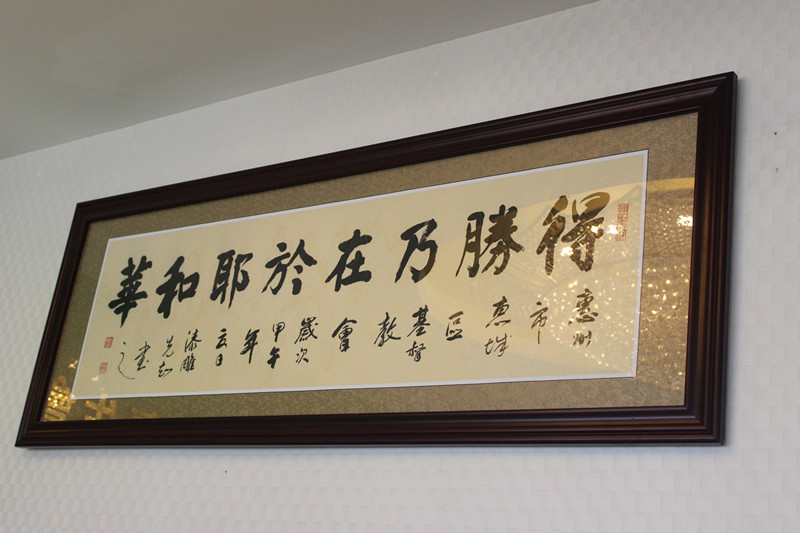 得勝乃在於耶和華
惠州市惠城區基督教會歲次甲午年
漆雕
書